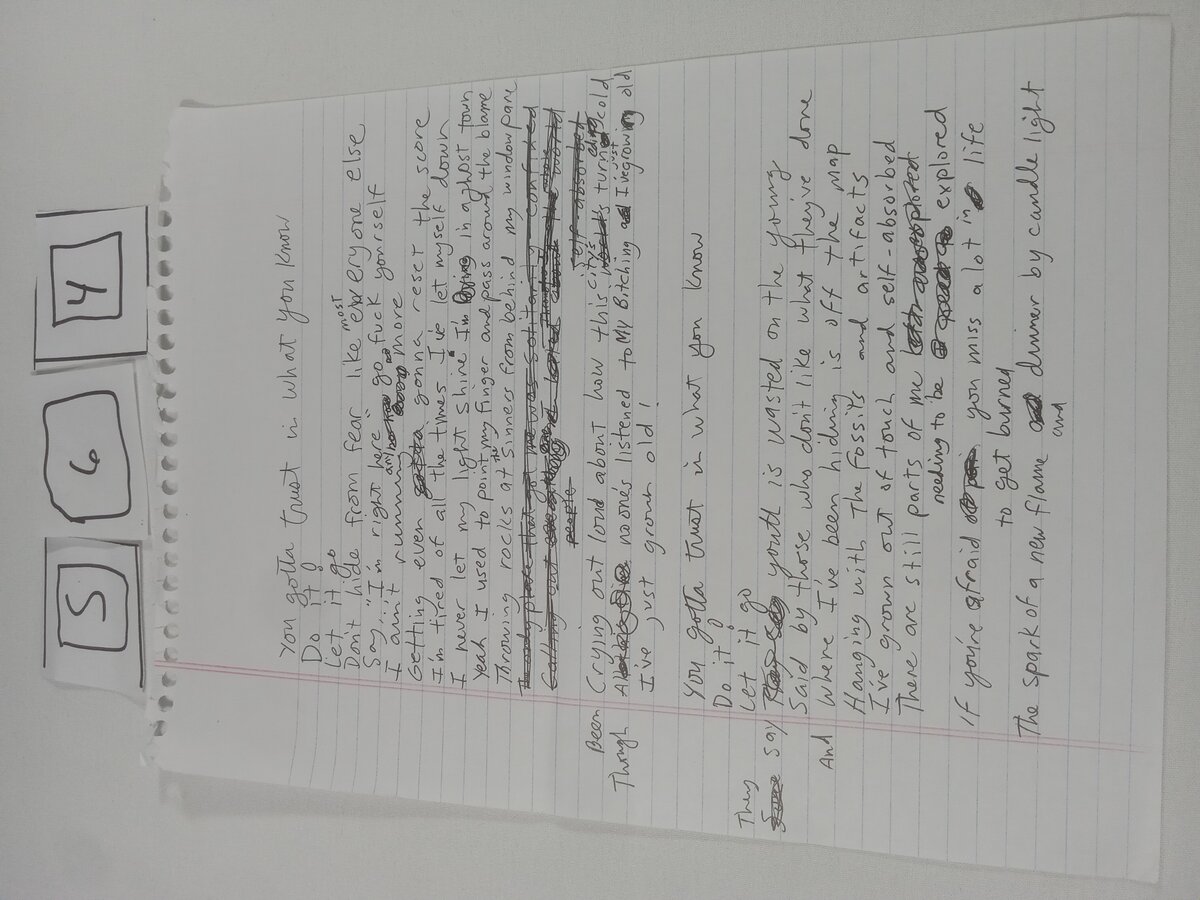 5
6
4
You gotta trust in what you know
Do it!
Let it go
Don't hide from fear like most everyone else
Say... "I'm right here" go fuck yourself
I ain't running more
Getting even gonna reset the score
I'm tired of all the times I've let myself down
I never let my light shine I'm in a ghost town
Yeah I used to point my finger and pass around the blame
Throwing rocks at the sinners from behind my windowpane
people
self-absorbed
Been Crying out loud about how this city's turned cold
Though no one's listened to My Bitching I've just growing old
I've just grown old!
You gotta trust in what you know
Do it!
Let it go
They say youth is wasted on the young
Said by those who don't like what they've done
And Where I've been hiding is off the map
Hanging with the fossils and artifacts
I've grown out of touch and self-absorbed
There are still parts of me
needing to be explored
If you're afraid you miss a lot in life
to get burned
The spark of a new flame and dinner by candle light